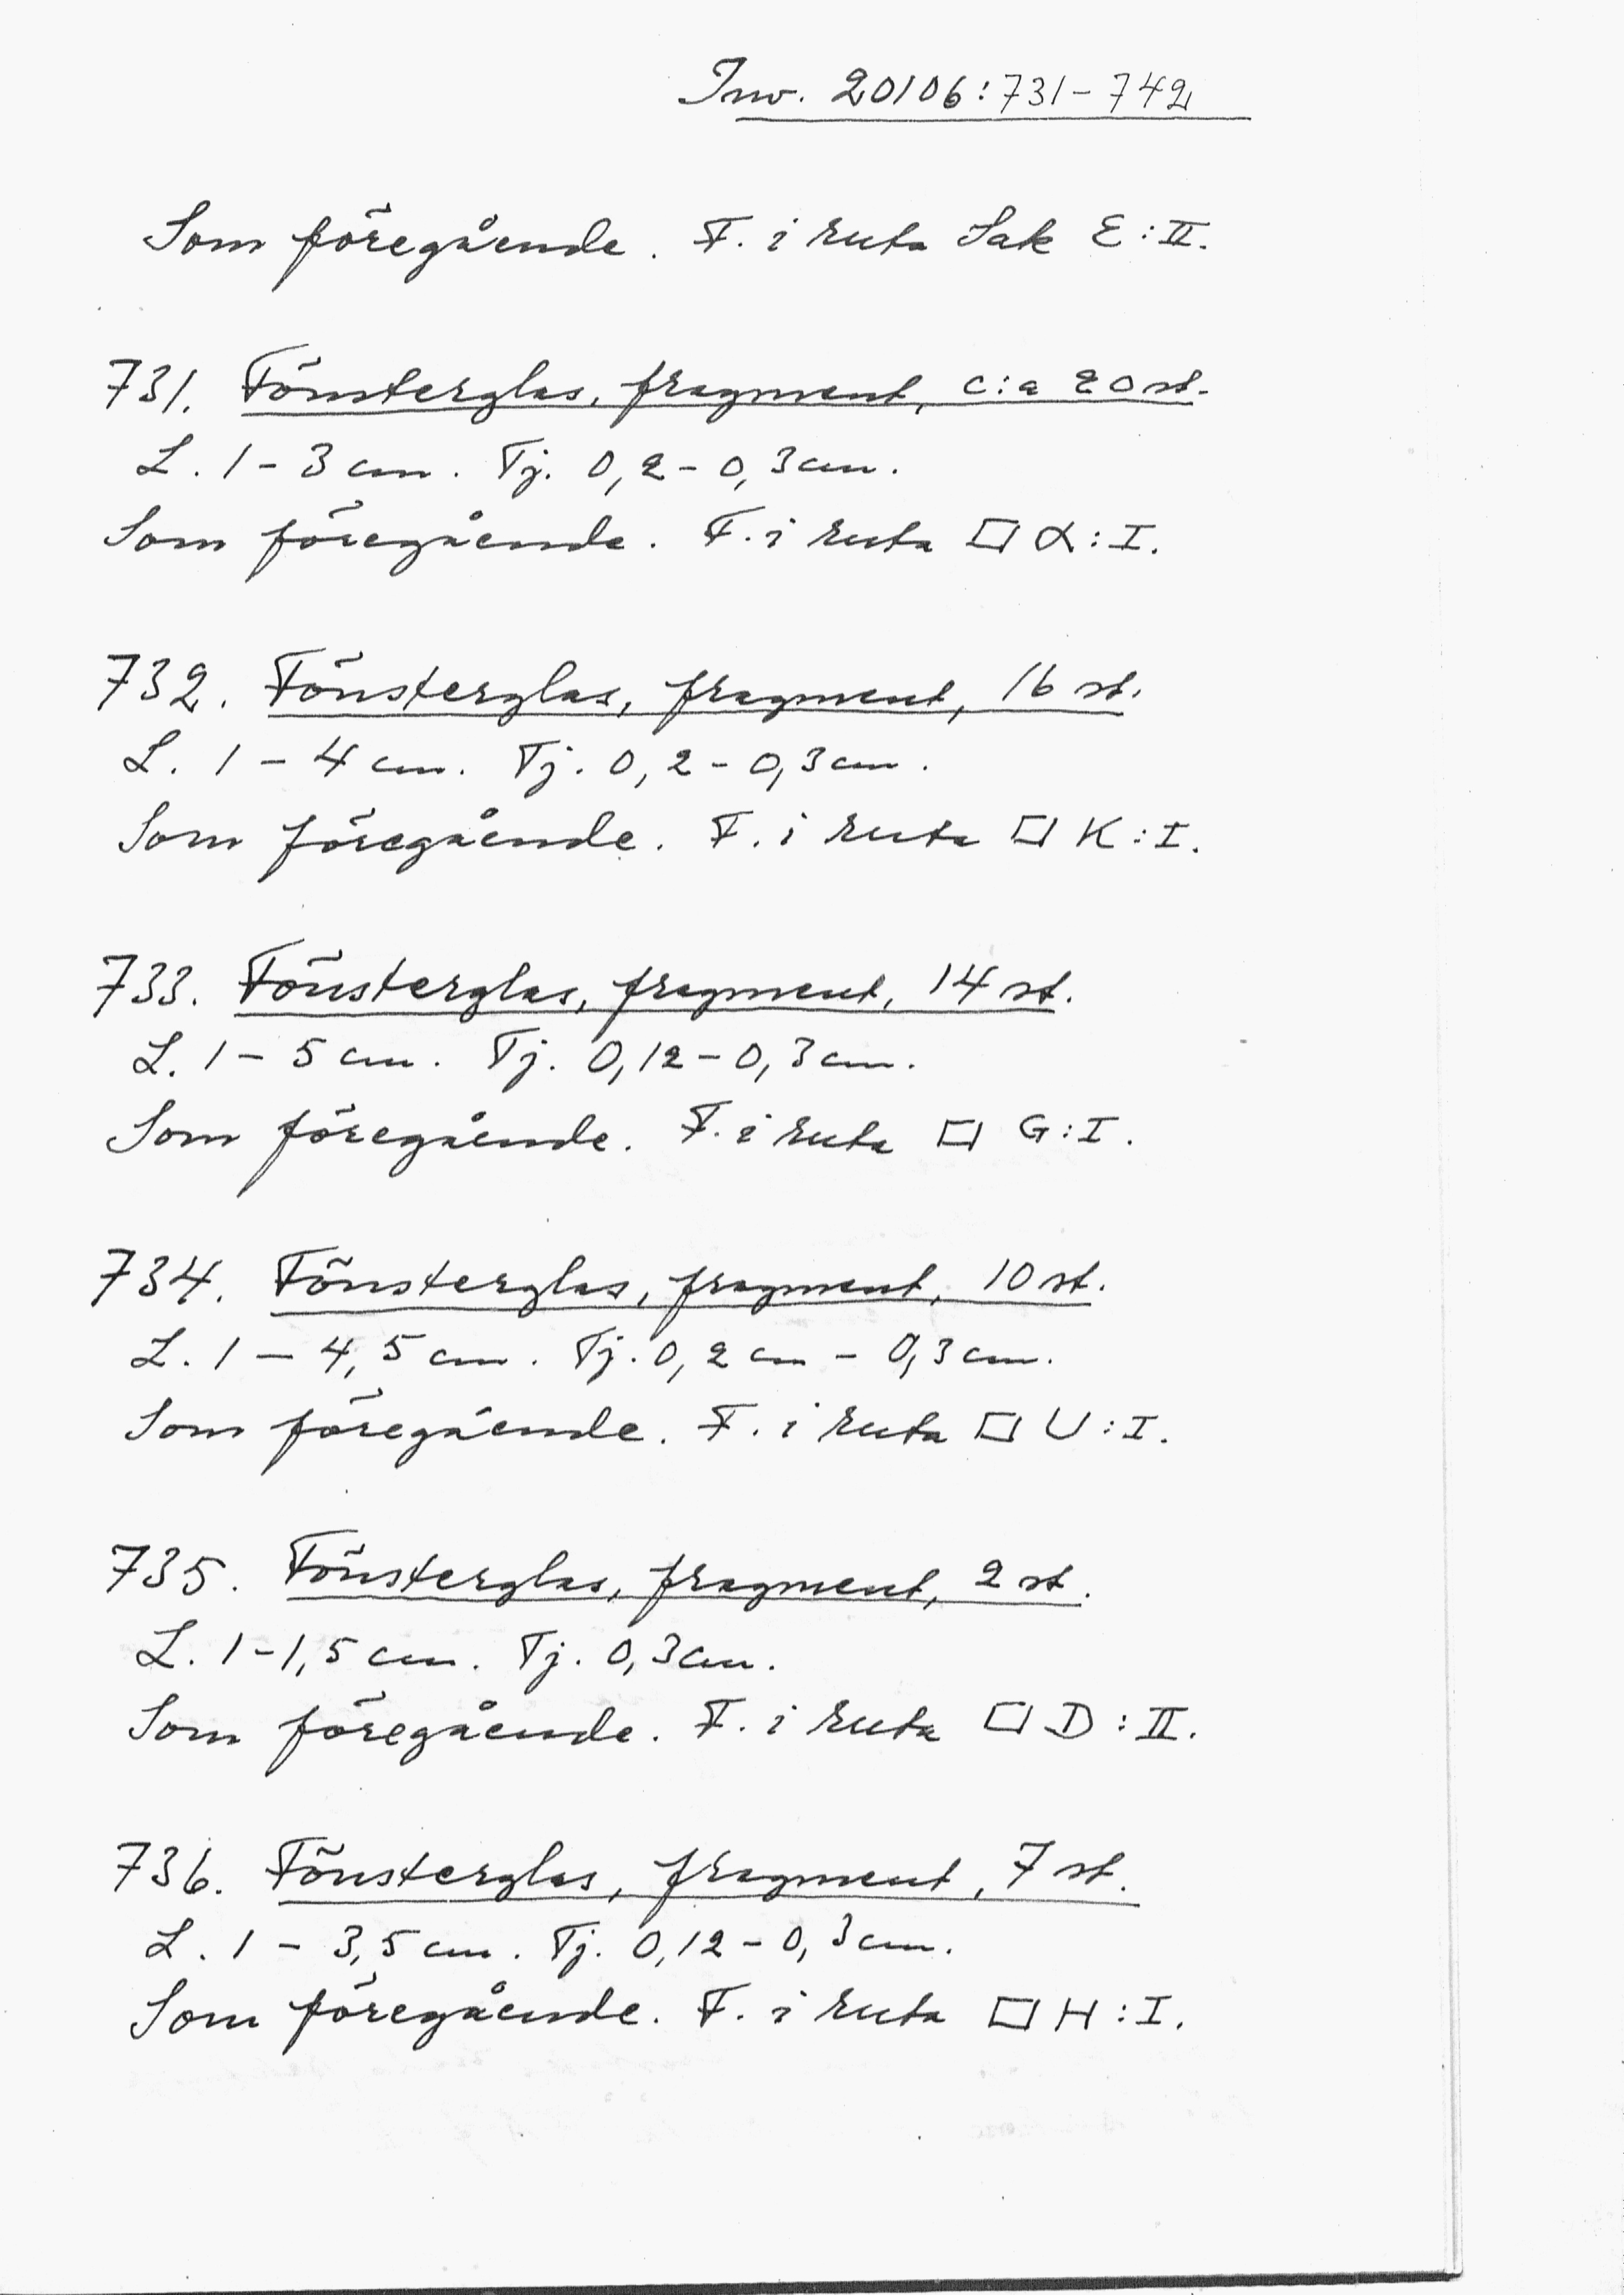 Inv. 20106:731-742
Som föregående. F. i ruta Sak E:II.
731. Fönsterglas, fragment, c:a 20 st.
L. 1-3 cm. Tj. 0,2-0,3 cm.
Som föregående. F. i ruta □ α:I.
732. Fönsterglas, fragment, 16 st.
L. 1-4 cm. Tj. 0,2-0,3 cm.
Som föregående. F. i ruta □ K:I.
733. Fönsterglas, fragment, 14 st.
L. 1-5 cm. Tj. 0,12-0,3 cm.
Som föregående. F. i ruta □ G:I.
734. Fönsterglas, fragment, 10 st.
L. 1-4,5 cm. Tj. 0,2 cm - 0,3 cm.
Som föregående. F. i ruta □ U:I.
735. Fönsterglas, fragment, 2 st.
L. 1-1,5 cm. Tj. 0,3 cm.
Som föregående. F. i ruta □ D:II.
736. Fönsterglas, fragment, 7 st.
L. 1-3,5 cm. Tj. 0,12-0,3 cm.
Som föregående. F. i ruta □ H:I.